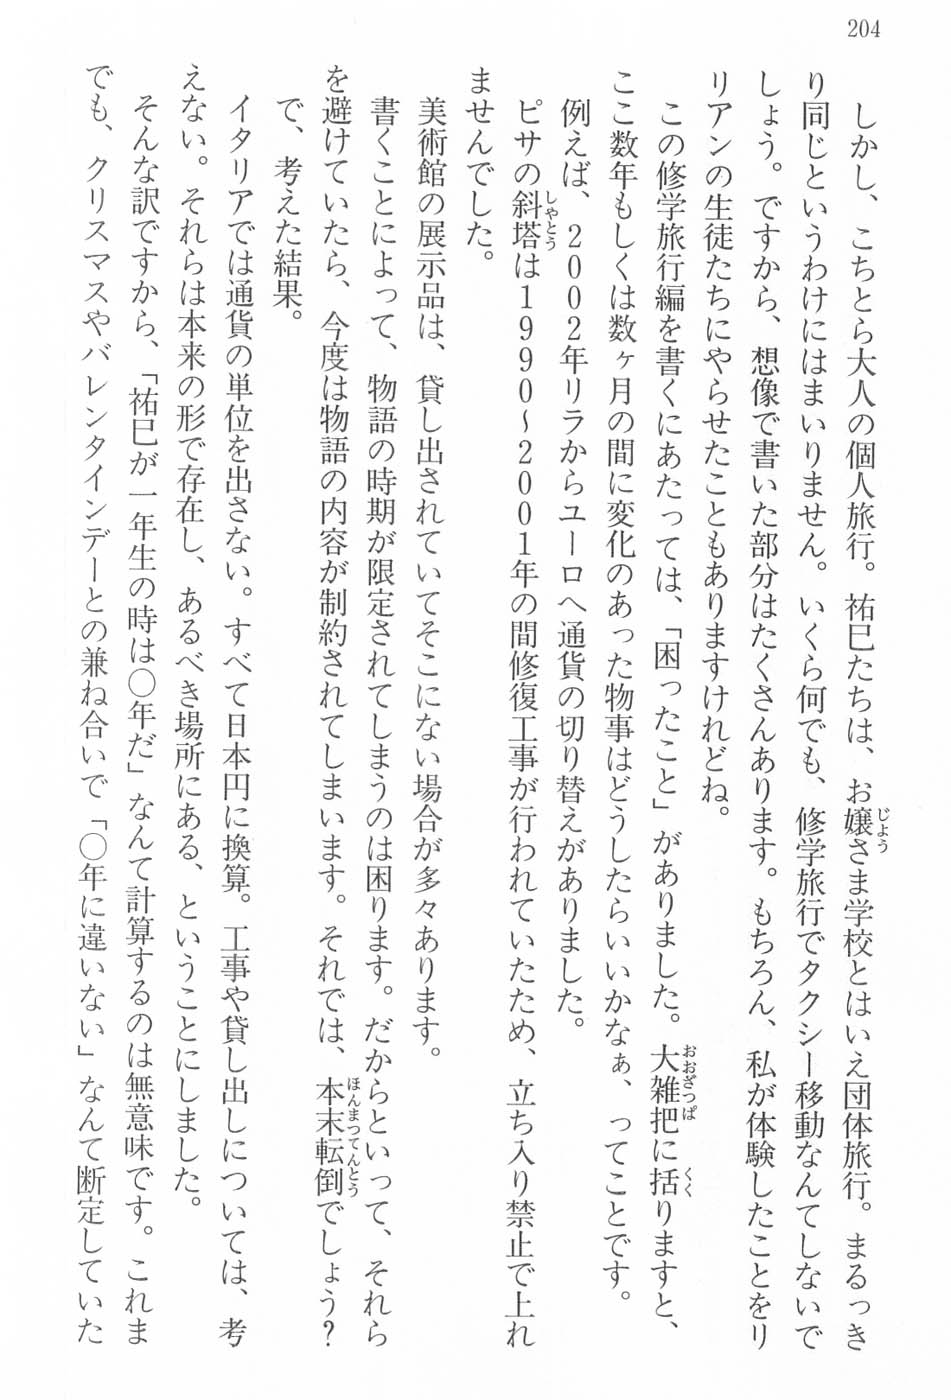 204
しかし、こちとら大人の個人旅行。祐巳たちは、お嬢さま学校とはいえ団体旅行。まるっき
り同じというわけにはまいりません。いくら何でも、修学旅行でタクシー移動なんてしないで
しょう。ですから、想像で書いた部分はたくさんあります。もちろん、私が体験したことをリ
リアンの生徒たちにやらせたこともありますけれどね。
この修学旅行編を書くにあたっては、「困ったこと」がありました。大雑把に括りますと、
ここ数年もしくは数ヶ月の間に変化のあった物事はどうしたらいいかなぁ、ってことです。
例えば、2002年リラからユーロへ通貨の切り替えがありました。
ピサの斜塔は1990～2001年の間修復工事が行われていたため、立ち入り禁止で上れ
ませんでした。
美術館の展示品は、貸し出されていてそこにない場合が多々あります。
書くことによって、物語の時期が限定されてしまうのは困ります。だからといって、それら
を避けていたら、今度は物語の内容が制約されてしまいます。それでは、本末転倒でしょう?
で、考えた結果。
イタリアでは通貨の単位を出さない。すべて日本円に換算。工事や貸し出しについては、考
えない。それらは本来の形で存在し、あるべき場所にある、ということにしました。
そんな訳ですから、「祐巳が一年生の時は〇年だ」なんて計算するのは無意味です。これま
でも、クリスマスやバレンタインデーとの兼ね合いで「〇年に違いない」なんて断定していた